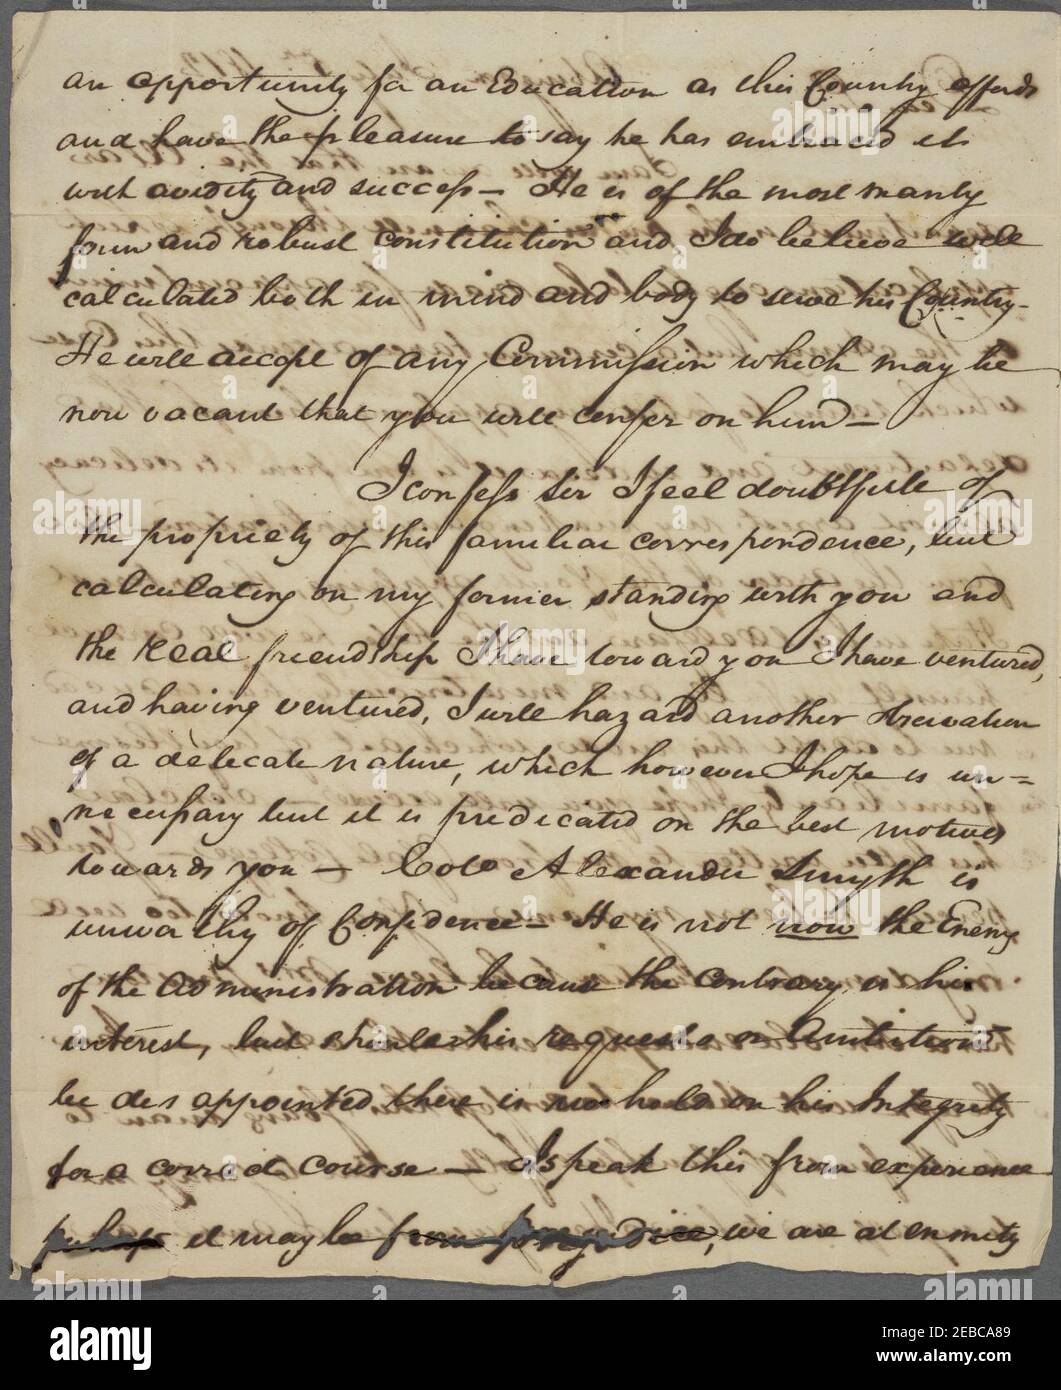 an opportunity for an Education as this Country affords
and have the pleasure to say he has embraced it
with avidity and success — He is of the most manly
form and robust constitution and I do believe well
calculated both in mind and body to serve his Country –
He will accept of any Commission which may be
now vacant that you will confer on him —
I confess Sir I feel doubtfull of
the propriety of this familiar correspondence, but
calculating on my former standing with you and
the real friendship I have toward you I have ventured,
and having ventured, I will hazard another observation
of a delicate nature, which however I hope is un=
necessary but it is predicated on the best motives
towards you — Colo Alexander Smyth is
unworthy of Confidence — He is not now the Enemy
of the Administration because the contrary is his
interest, but should his requests or Ambition
be disappointed there is no hold on his Integrity
for a correct course — I speak this from experience
perhaps it may be from prejudice, we are at enmity
alamy
Image ID: 2EBCA89
www.alamy.com